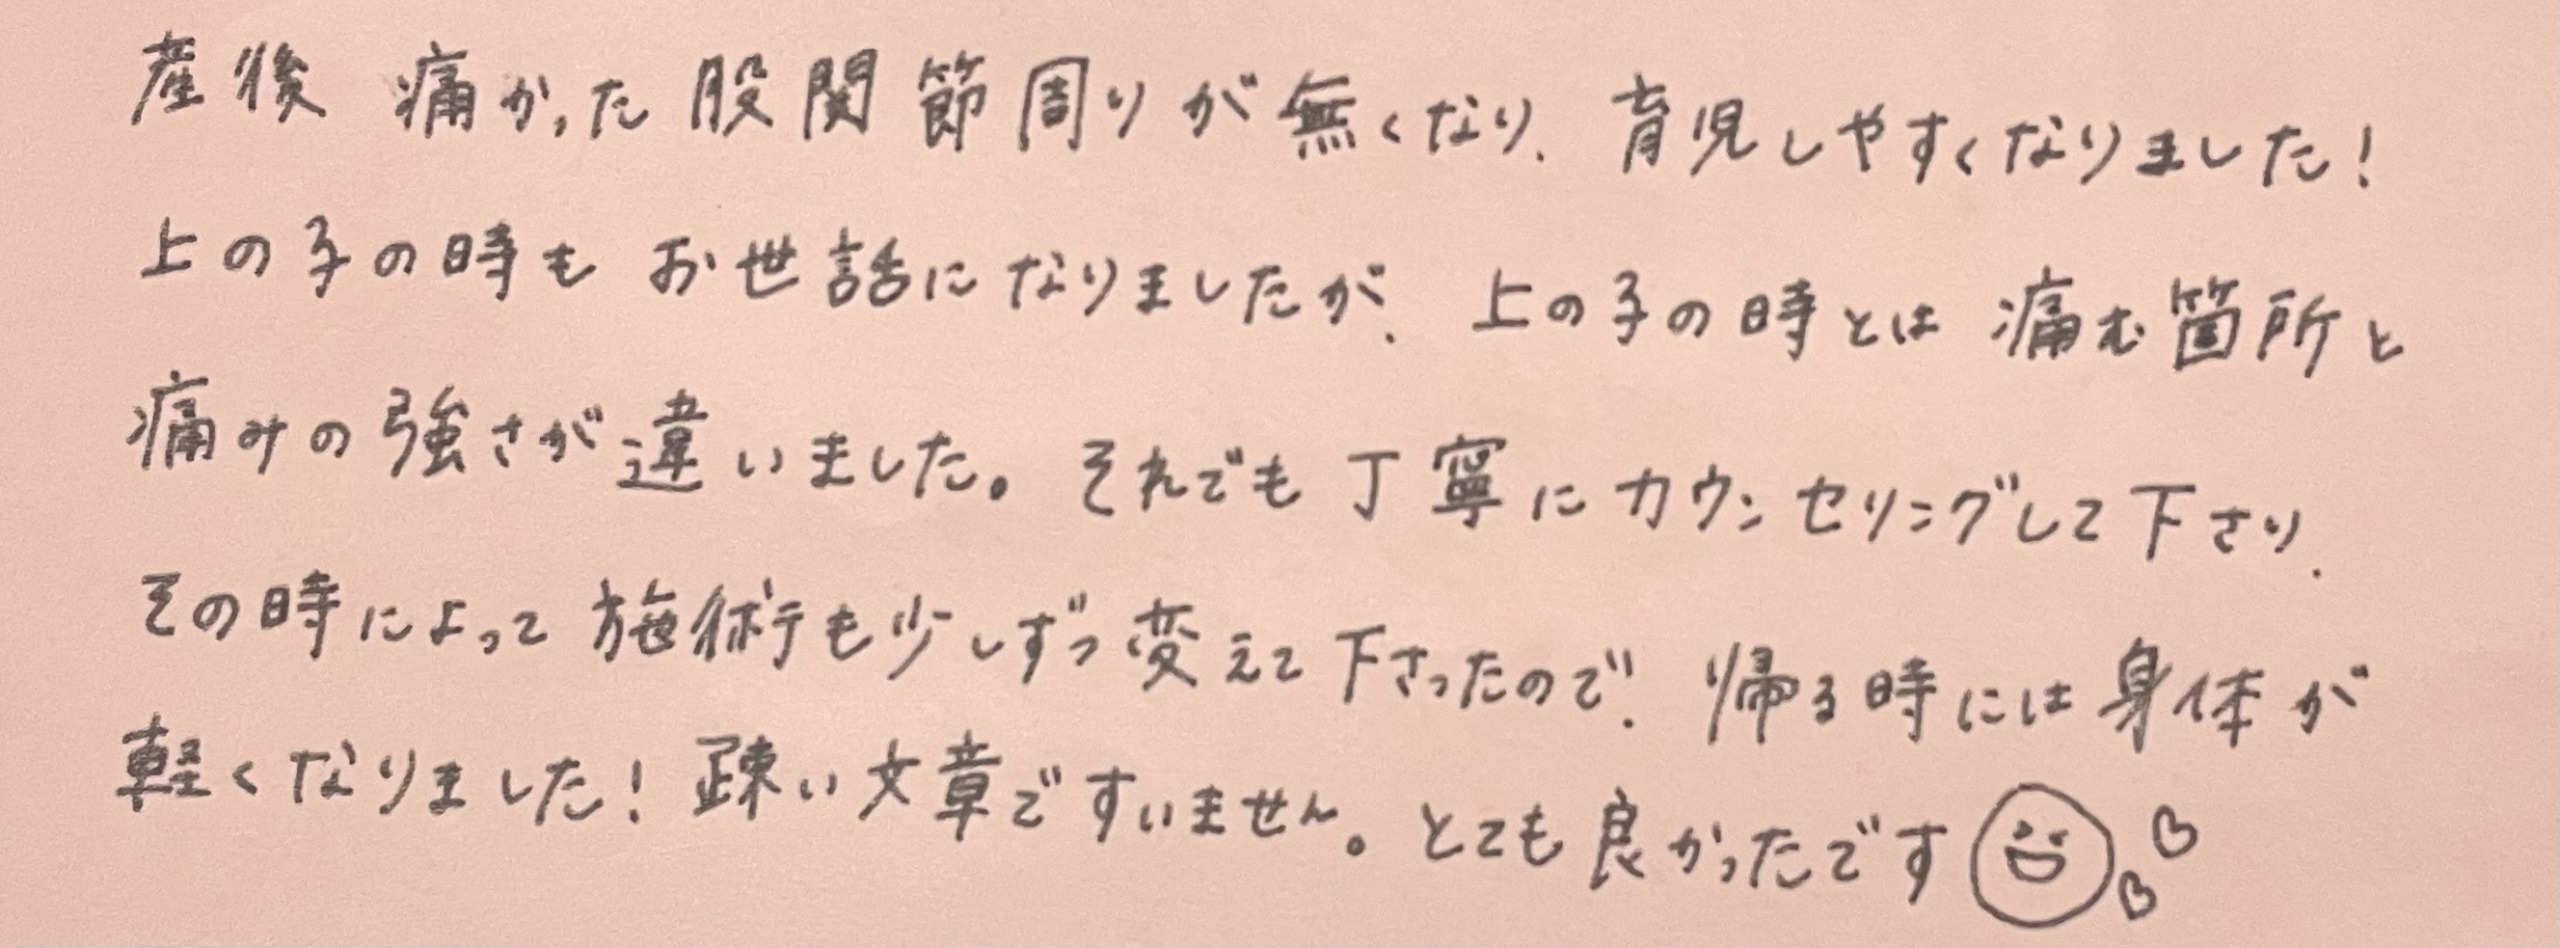 産後 痛かった股関節周りが無くなり、育児しやすくなりました!
上の子の時も お世話になりましたが、上の子の時とは 痛む箇所と
痛みの強さが違いました。それでも丁寧にカウンセリングして下さり、
その時によって 施術も少しずつ変えて下さったので、帰る時には身体が
軽くなりました! 疎い文章ですいません。とても良かったです